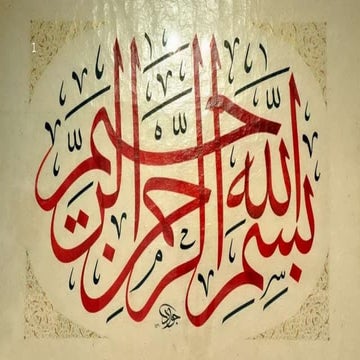 1
بسم الله الرحمن الرحيم